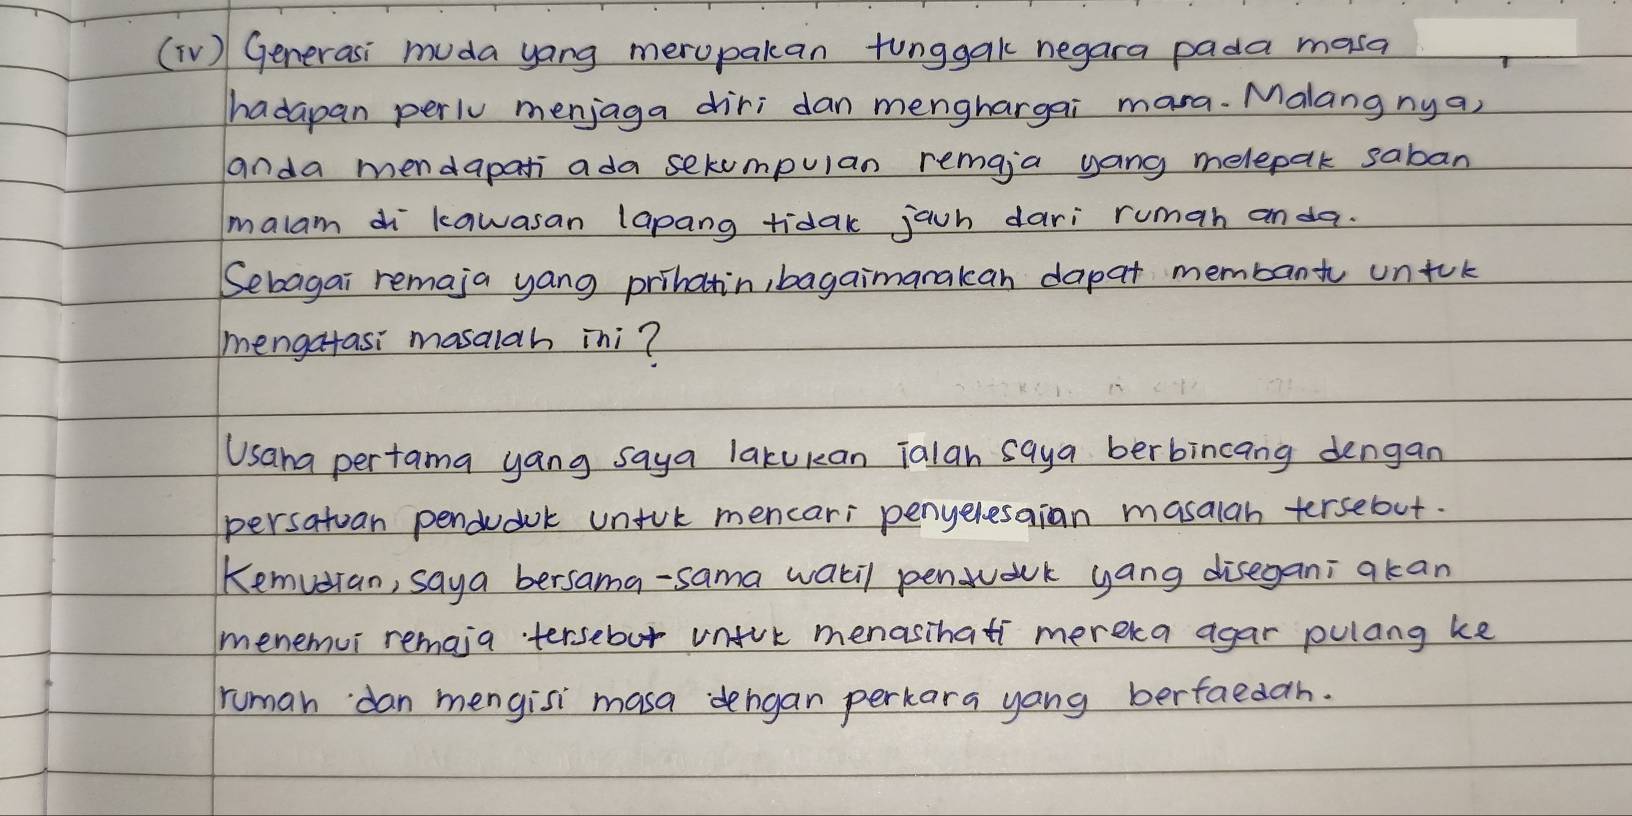 (iv) Generasi muda yang merupakan tunggak negara pada masa
hadapan perlu menjaga diri dan menghargai masa. Malangnya,
anda mendapati ada sekumpulan remaja yang melepak saban
malam di kawasan lapang tidak jauh dari rumah anda.
Sebagai remaja yang prihatin, bagaimanakah dapat membantu untuk
mengatasi masalah ini?
Usaha pertama yang saya lakukan ialah saya berbincang dengan
persatuan penduduk untuk mencari penyelesaian masalah tersebut.
Kemudian, saya bersama-sama wakil penduduk yang disegani akan
menemui remaja tersebut untuk menasihati mereka agar pulang ke
rumah dan mengisi masa dengan perkara yang berfaedah.